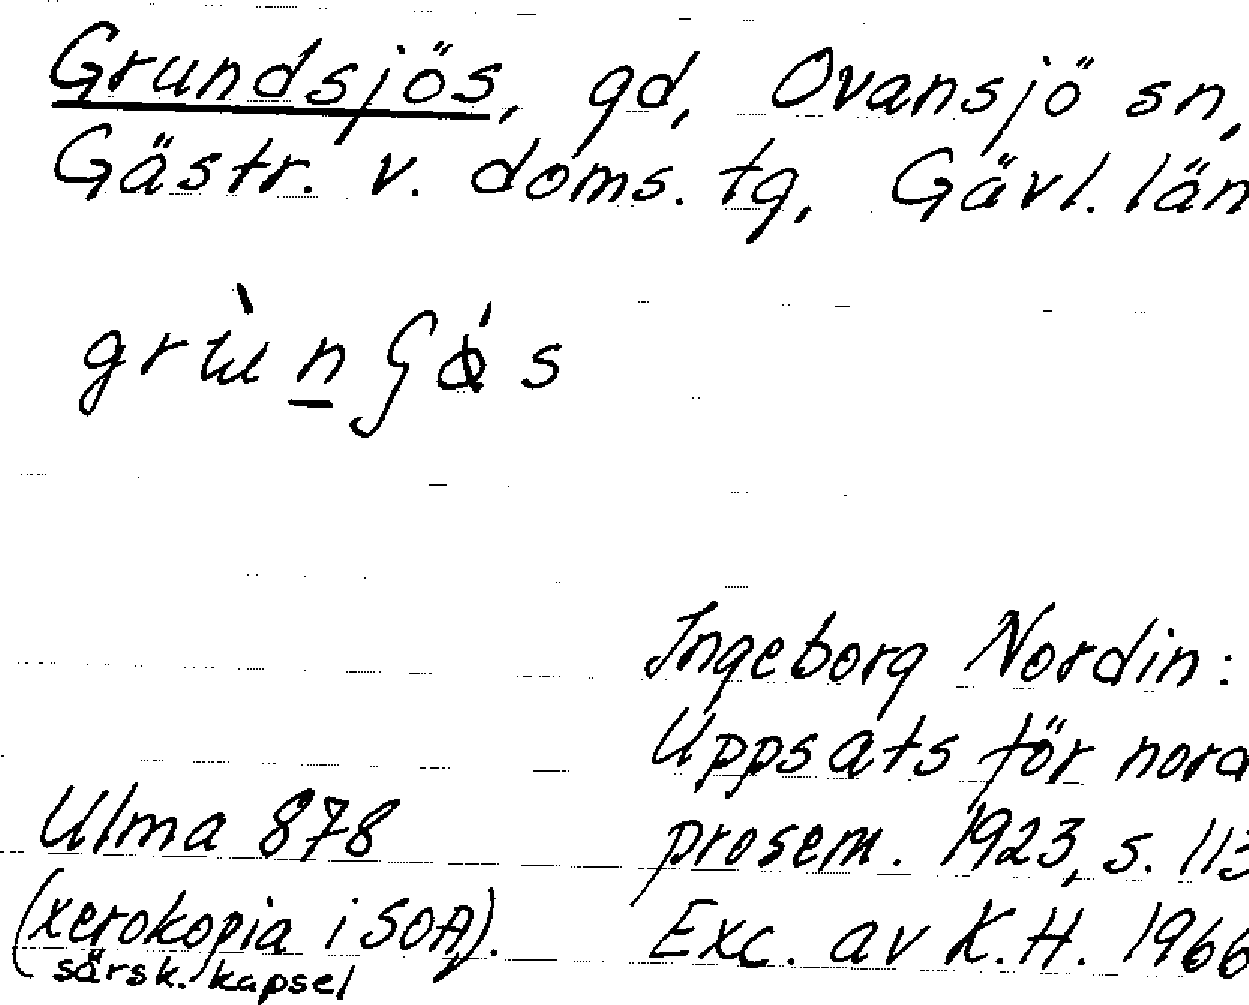 Grundsjös, gd, Ovansjö sn,
Gästr. v. doms. tg, Gävl. län
Ingeborg Nordin:
Uppsats för nord
prosem. 1923, s. 113
Ulma 878
(xerokopia i SOA).
särsk. kapsel
Exc. av K.H. 1966